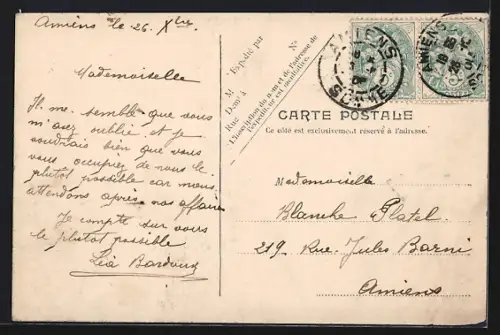 Amiens le 26. Xbre
Mademoiselle
Il me semble que vous
m'avez oublié et je
voudrais bien que vous
vous occupiez de nous le
plutôt possible car nous
attendons après nos affaires
Je compte sur vous
le plutôt possible
Léa
N°
M
Expédié par
Demt à
Rue
L'inscription du nom et de l'adresse de
l'expédit. ur est facultative.
AMIENS
SOMME
AMIENS
CARTE POSTALE
Ce côté est exclusivement réservé à l'adresse.
Mademoiselle
Blanche Platel
219 Rue Jules Barni
Amiens